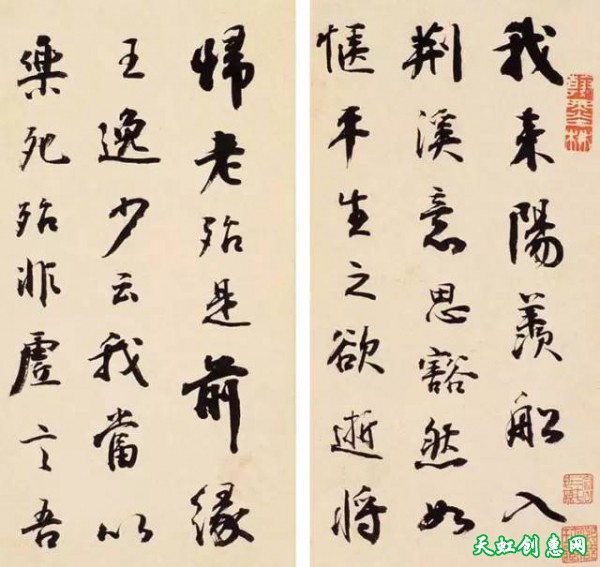 我来陽羨船入
荆溪意思豁然如
愜平生之欲逝將
歸老殆是前緣
王逸少云我當以
樂死殆非虛言吾
天虹创惠网